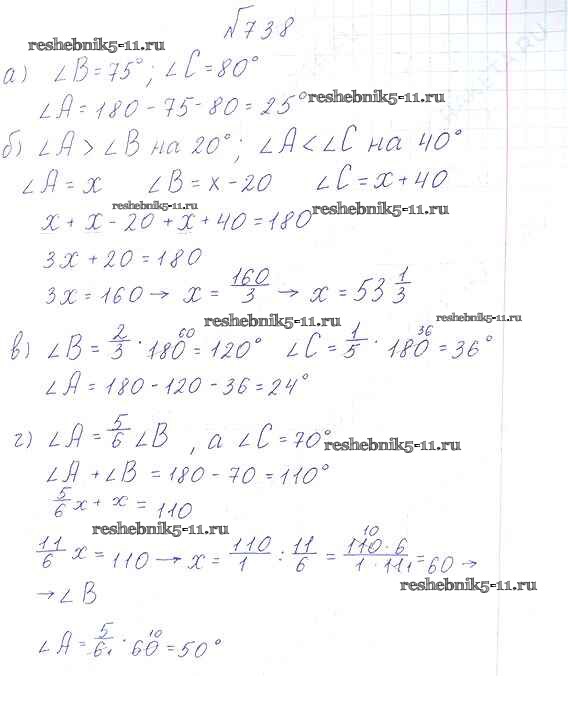 №738
reshebnik5-11.ru
а) ∠B = 75°; ∠C = 80°
∠A = 180 - 75 - 80 = 25° reshebnik5-11.ru
б) ∠A > ∠B на 20°; ∠A < ∠C на 40°
∠A = x ∠B = x - 20 ∠C = x + 40
reshebnik5-11.ru reshebnik5-11.ru
x + x - 20 + x + 40 = 180
3x + 20 = 180
3x = 160 → x = 160/3 → x = 53 1/3
reshebnik5-11.ru reshebnik5-11.ru
в) ∠B = 2/3 · 180 60 = 120° ∠C = 1/5 · 180 36 = 36°
∠A = 180 - 120 - 36 = 24°
г) ∠A = 5/6 ∠B, а ∠C = 70° reshebnik5-11.ru
∠A + ∠B = 180 - 70 = 110°
5/6 x + x = 110
reshebnik5-11.ru
11/6 x = 110 → x = 110/1 : 11/6 = 110 10 · 6/1 · 11 1 = 60 →
reshebnik5-11.ru
→ ∠B
∠A = 5/6 1 · 60 10 = 50°